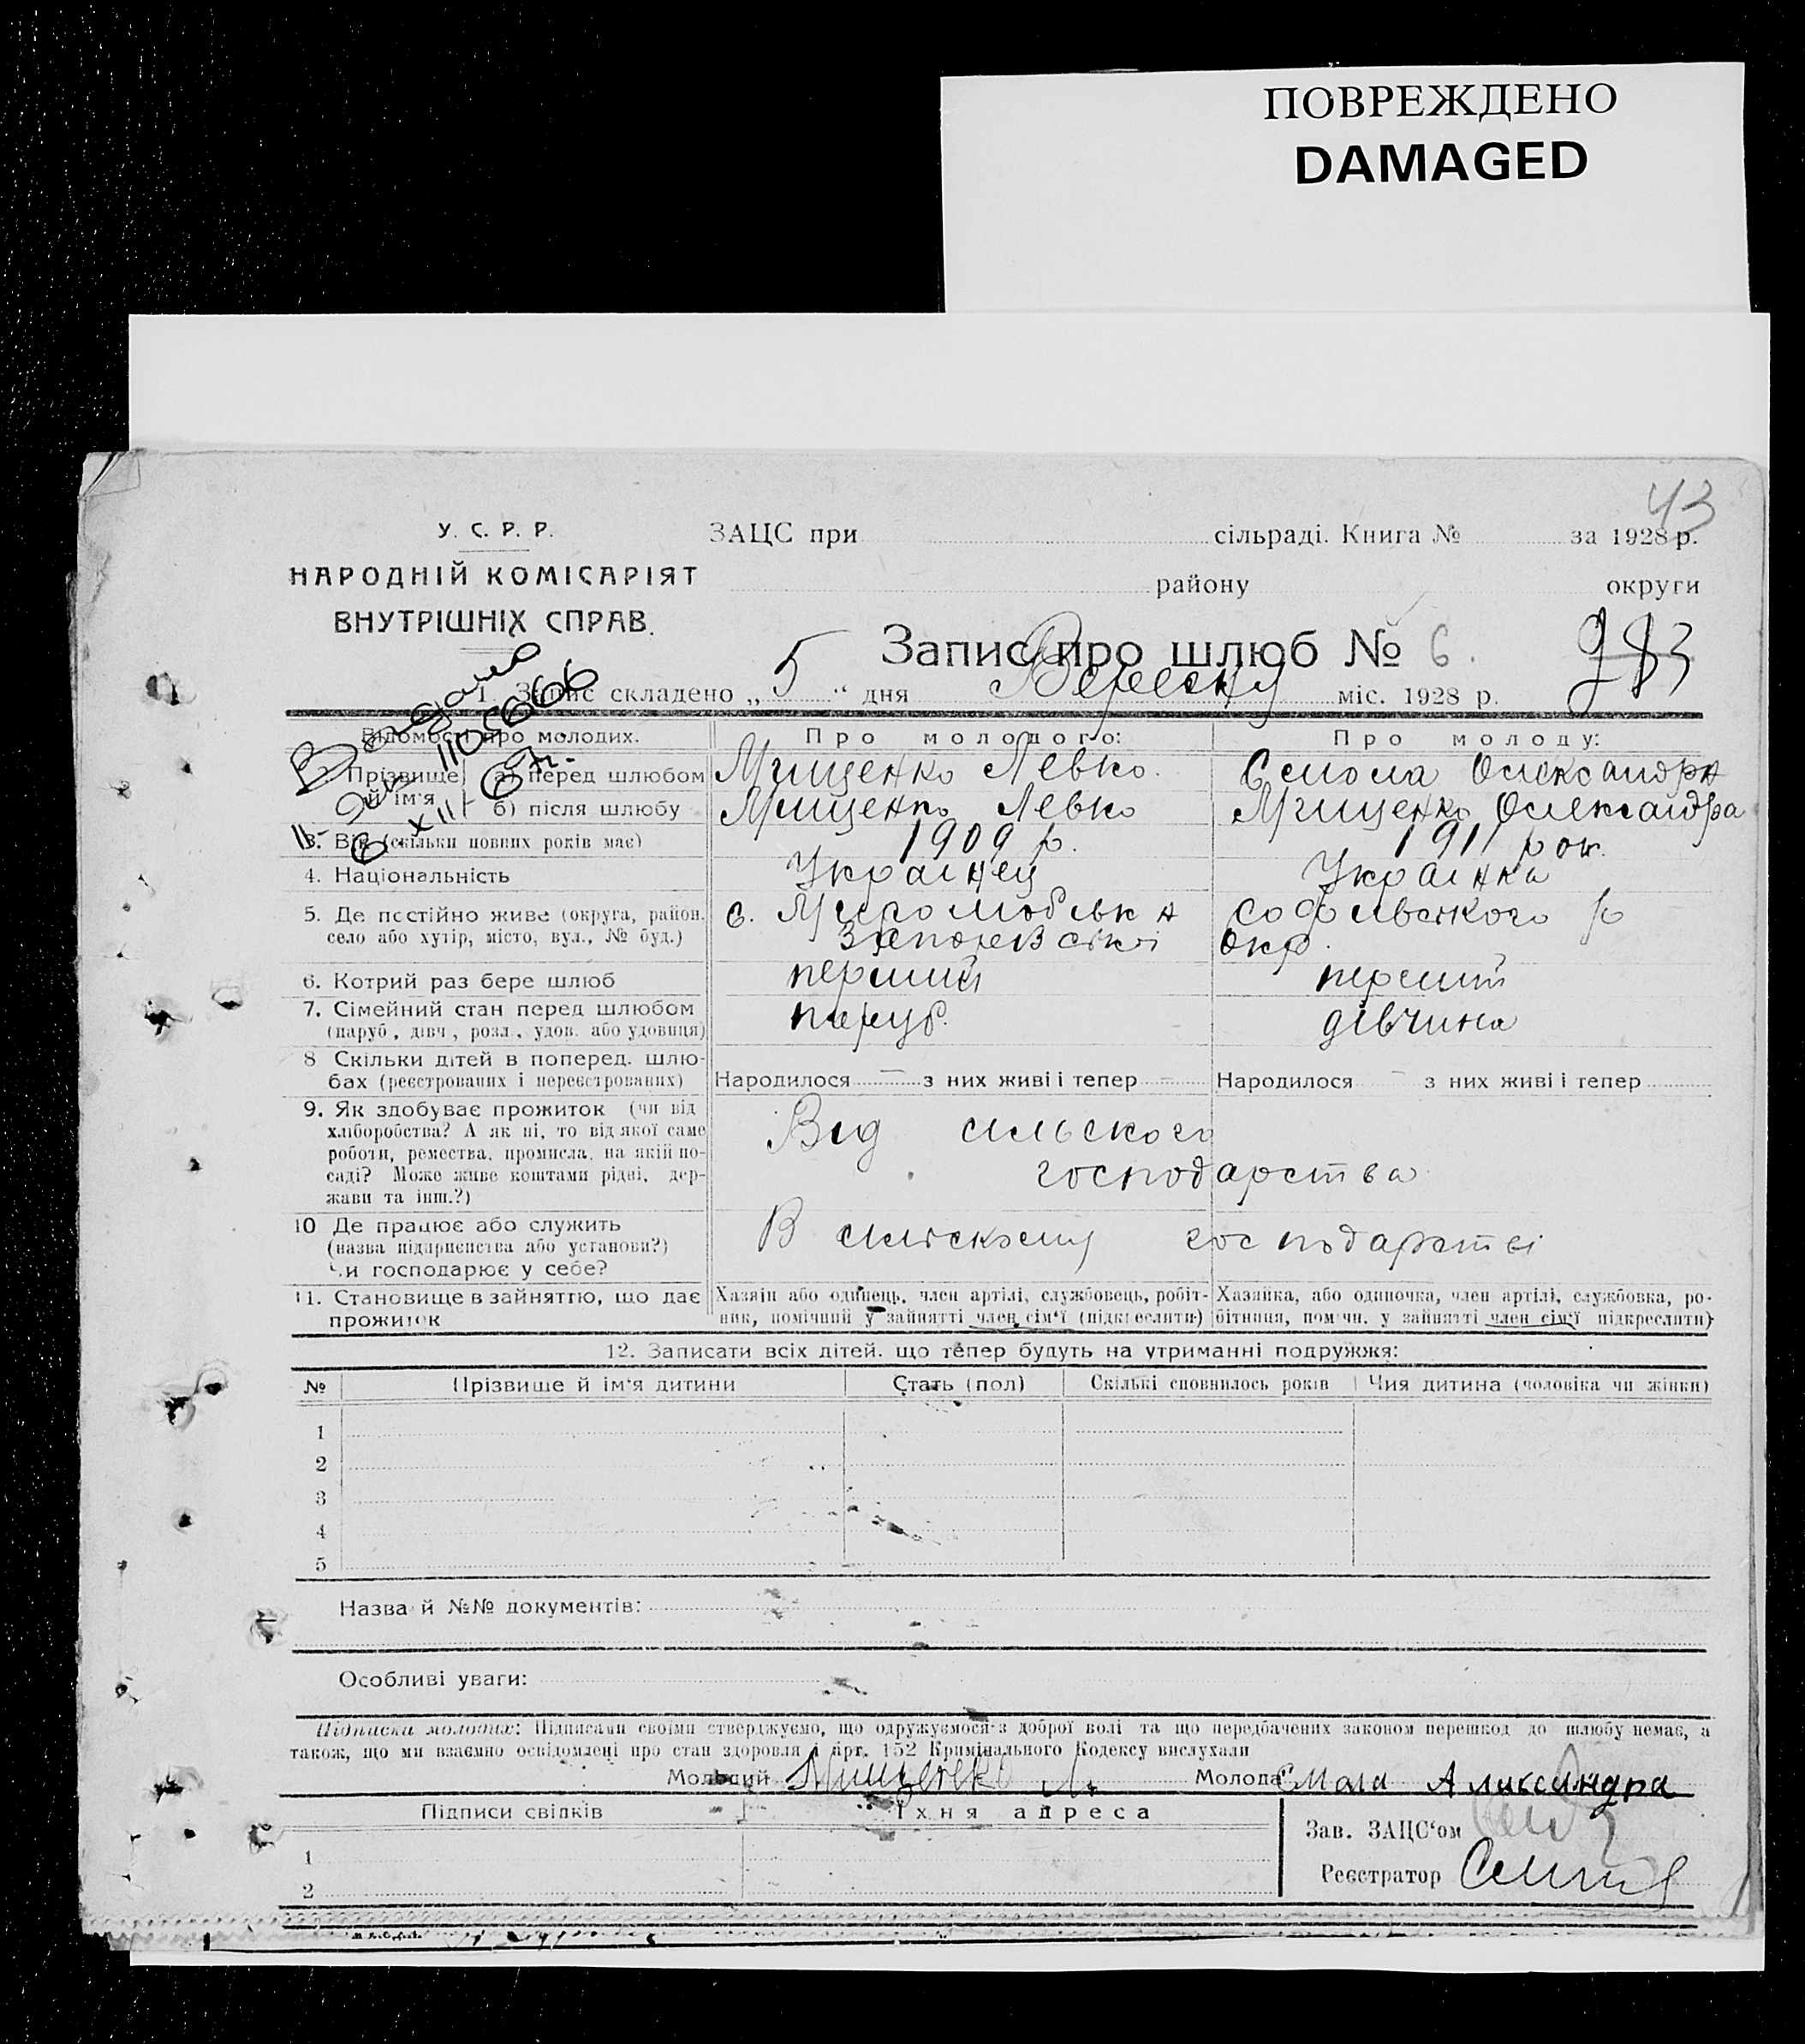 ПОВРЕЖДЕНО
DAMAGED
43
У. С. Р. Р.
НАРОДНІЙ КОМІСАРІЯТ
ВНУТРІШНІХ СПРАВ.
ЗАЦС при сільраді. Книга № за 1928 р.
району округи
Запис про шлюб № 6.
983
1. Запис складено „ 5 “ дня Вересня міс. 1928 р.
Відомости про молодих. Про молодого: Про молоду:
Прізвище й ім'я
а) перед шлюбом Мищенко Левко. Смола Олександра
б) після шлюбу Мищенко Левко Мищенко Олександра
3. Вік (скільки повних років має) 1909 р. 1911 рок.
4. Національність Українец Українка
5. Де постійно живе (округа, район. с. Миролюбівка Софиевського р
село або хутір, місто, вул., № буд.) Запорізькі Окр.
6. Котрий раз бере шлюб перший перший
7. Сімейний стан перед шлюбом
(паруб, дівч, розл., удов. або удовиця) паруб. дівчина
8 Скільки дітей в поперед. шлю-
бах (реєстрованих і нереєстрованих) Народилося — з них живі і тепер — Народилося — з них живі і тепер
9. Як здобуває прожиток (чи від
хліборобства? А як ні, то від якої саме
роботи, ремества, промисла, на якій по-
саді? Може живе коштами рідні, дер-
жави та інш.?)
Від сільского
господарства
10 Де працює або служить
(назва підприємства або установи?)
Чи господарює у себе?
В сильскому господарстві
11. Становище в зайняттю, що дає
прожиток
Хазяін або одинець, член артілі, службовець, робіт-
ник, помічний у зайнятті член сім'ї (підкреслити)
Хазяйка, або одиночка, член артілі, службовка, ро-
бітниця, помічн. у зайнятті член сім'ї підкреслити)
12. Записати всіх дітей. що тепер будуть на утриманні подружжя:
№ Прізвище й ім'я дитини Стать (пол) Скількі сповнилось років Чия дитина (чоловіка чи жінки)
1
2
3
4
5
Назва й №№ документів:
Особливі уваги:
Підписка молодих: Підписами своїми стверджуємо, що одружуємося з доброї волі та що передбачених законом перешкод до шлюбу немає, а
також, що ми взаємно освідомлені про стан здоровля і арт. 152 Кримінального Кодексу вислухали
Молодий Мищенко Л. Молода Смола Александра
Підписи свідків Їхня адреса
Зав. ЗАЦС'ом
1
Реєстратор
2